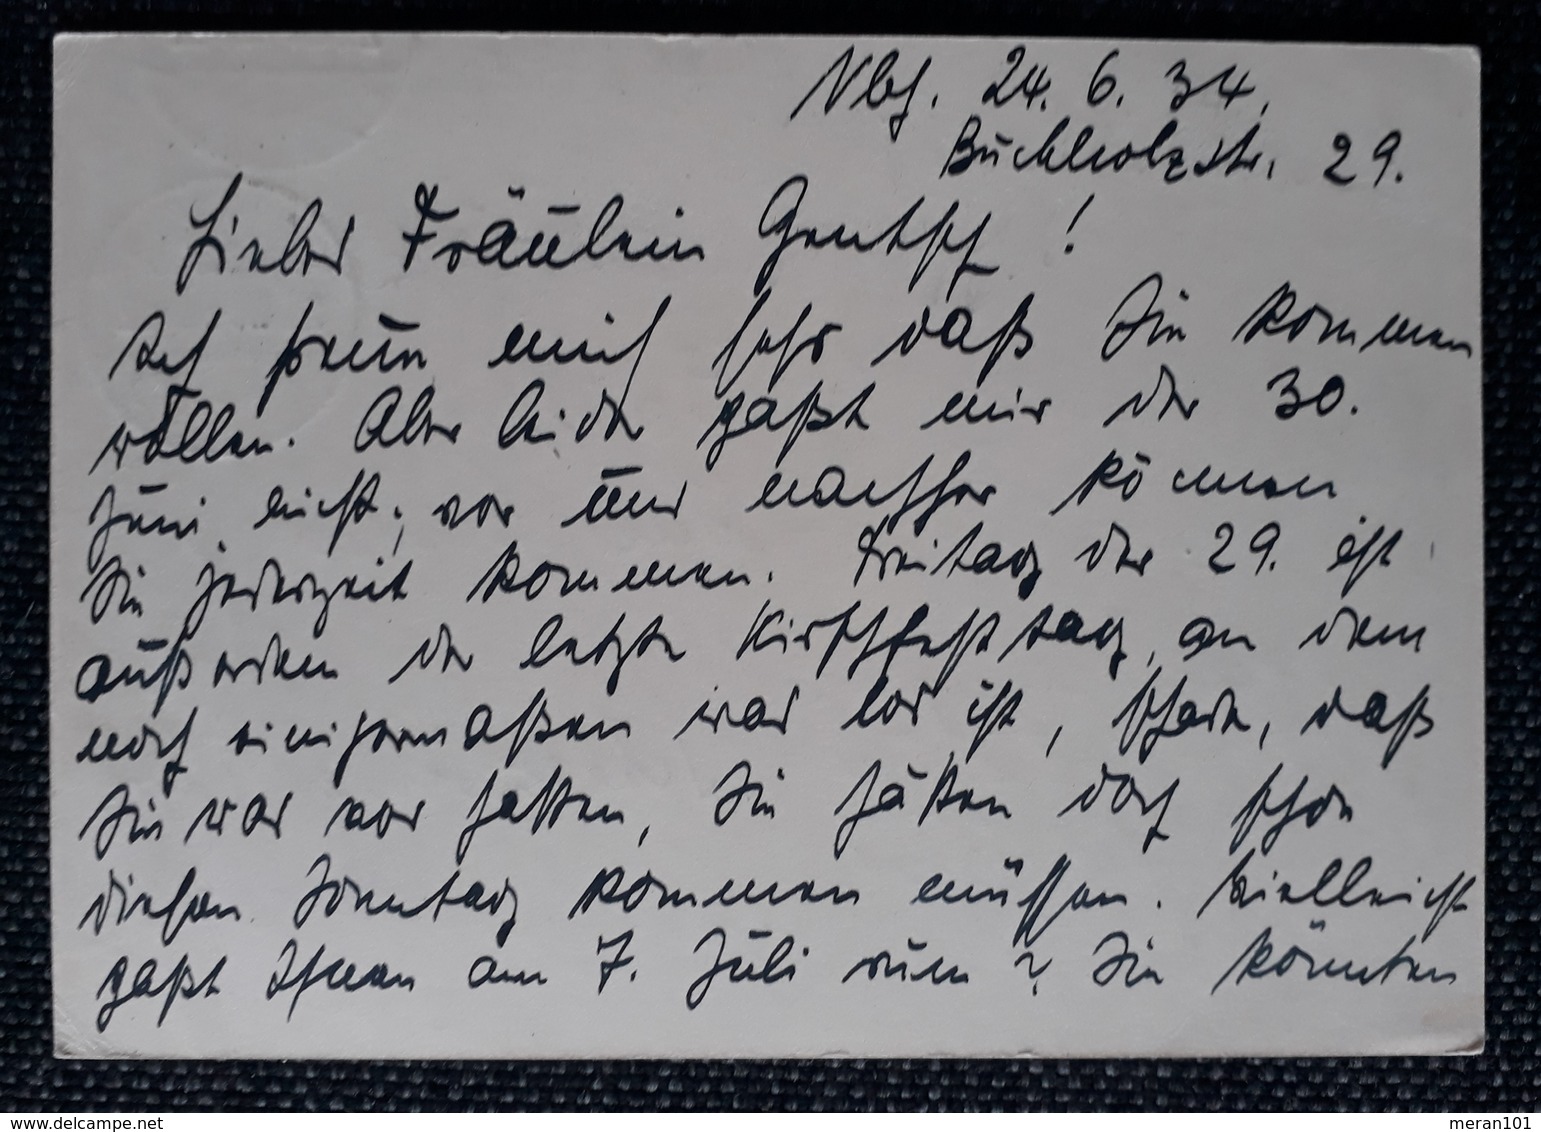 Nbg. 24. 6. 34.
Buchholzstr. 29.
Liebes Fräulein Gentsch!
Ich freue mich sehr daß Sie kommen
wollen. Aber leider paßt mir der 30.
Juni nicht; vor und nachher können
Sie jederzeit kommen. Freitag der 29. ist
außerdem der letzte Kirschfesttag, an dem
noch einigermaßen was los ist, schade, daß
Sie was vor hatten, Sie hätten doch schon
diesen Sonntag kommen müssen. Vielleicht
paßt Ihnen am 7. Juli nun? Sie könnten
www.delcampe.net
meran101